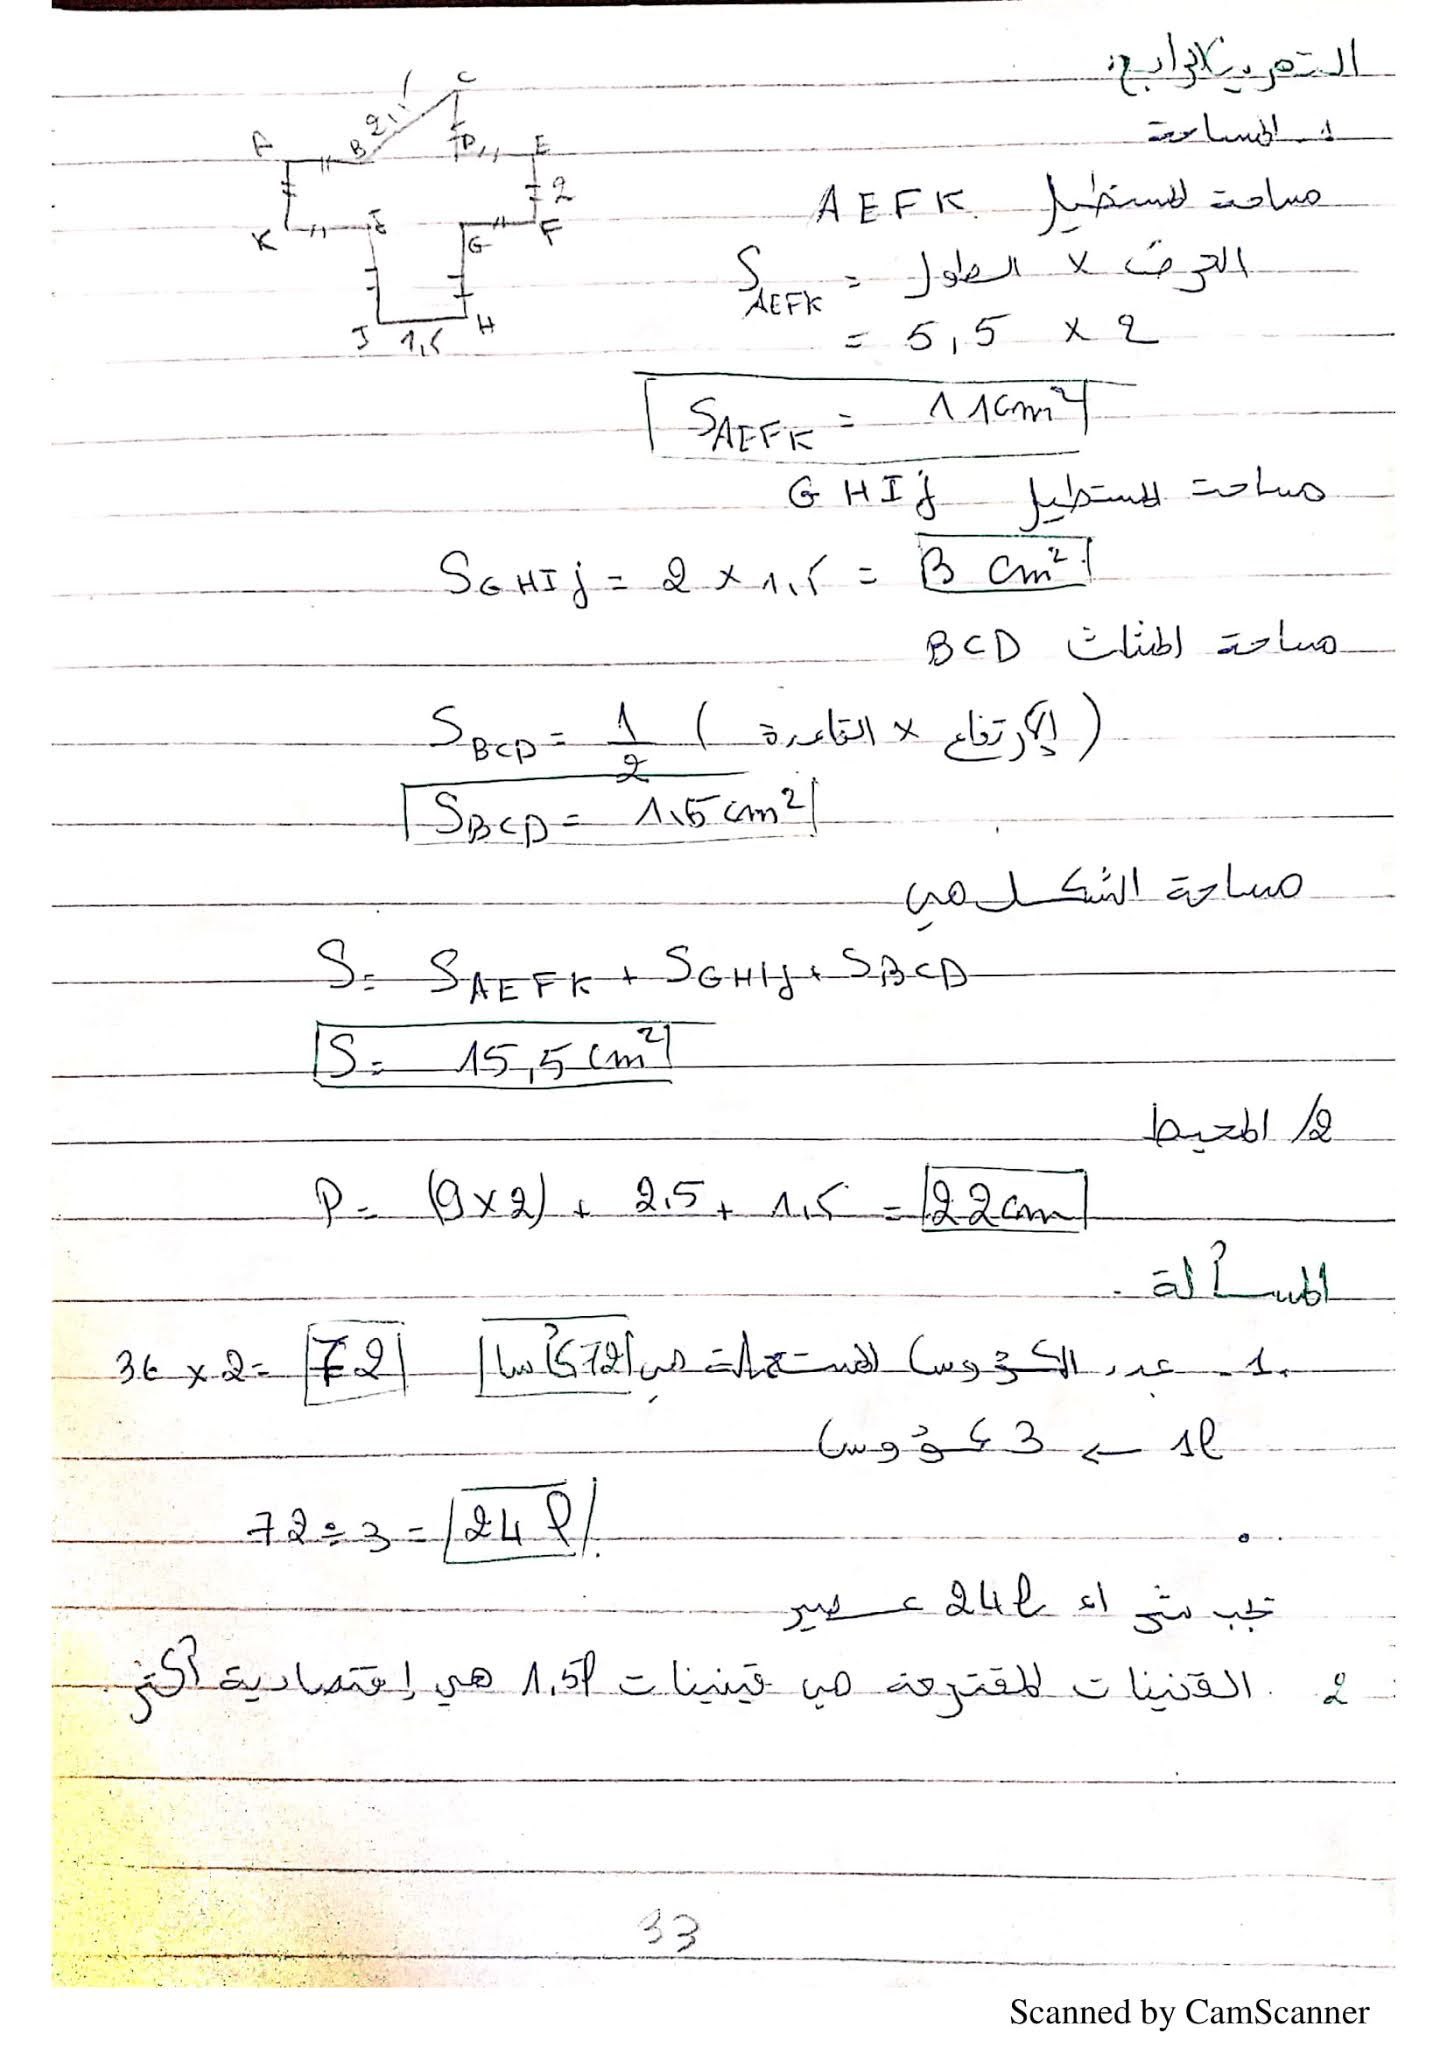 التمرين الرابع:
1. المساحة
مساحة المستطيل AEFK
S AEFK = الطول × العرض
= 5,5 × 2
S AEFK = 11cm²
مساحة المستطيل GHIj
S GHIj = 2 × 1,5 = 3 cm²
مساحة المثلث BCD
S BCD = 1/2 ( القاعدة × الإرتفاع )
S BCD = 1,5 cm²
مساحة الشكل هي
S = S AEFK + S GHIj + S BCD
S = 15,5 cm²
2/ المحيط
P = (9×2) + 2.5 + 1,5 = 22cm
المسألة
1. عدد الكؤوس المستعملة هي 72 كأسا 36 × 2 = 72
1l ← 3 كؤوس
72 ÷ 3 = 24 l
يجب شراء 24l عصير
2. القنينات المقترحة هي قنينات 1.5l هي إقتصادية أكثر
A B C D E F G H I J K
2 1,5
33
Scanned by CamScanner